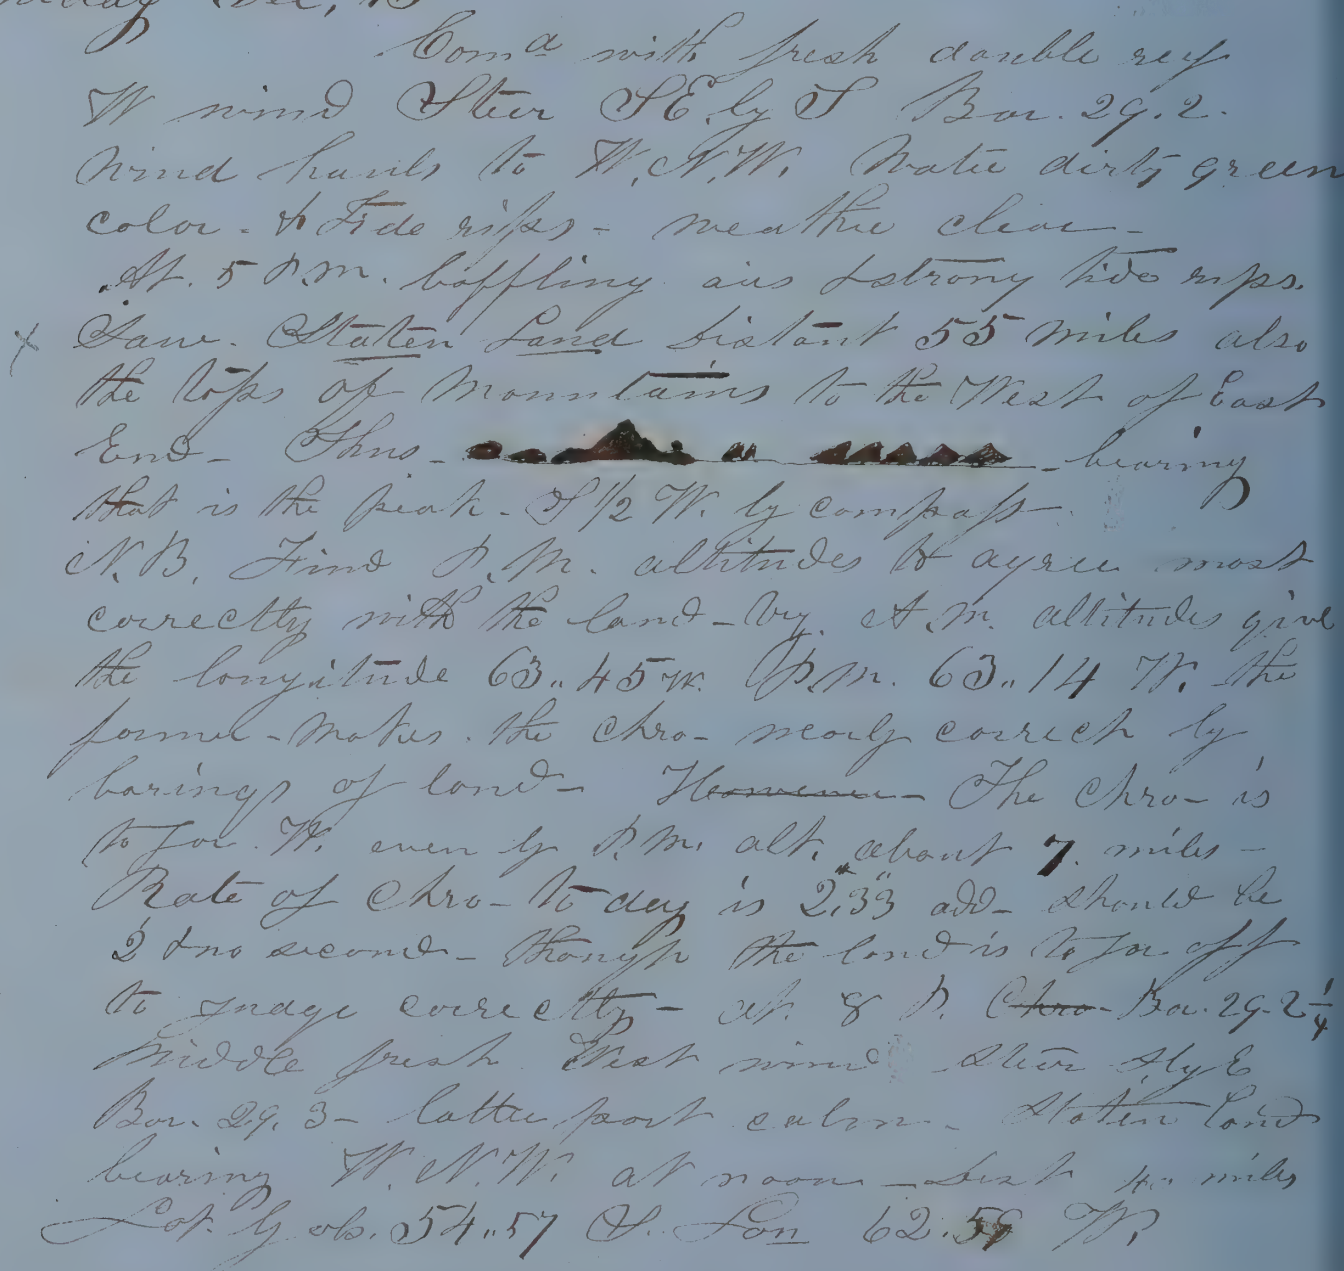 Dec, 13
Com^d with fresh double reef
W wind Steer SE by S Bar. 29.2.
wind hauls to W.N.W. Water dirty green
color. & Tide rips - weather clear -
At 5 P.M. baffling airs & strong tide rips.
x Saw. Staten Land distant 55 miles also
the tops of Mountains to the West of East
End - Thus - - bearing
that is the peak - S 1/2 W. by compass -
N.B. Find P.M. altitudes to agree most
correctly with the land - by A.M. altitudes give
the longitude 63..45 W. P.M. 63..14 W. the
former - makes. the chro - nearly correct by
barings of land - The Chro - is
to far W. even by P.M. alt. about 7. miles -
Rate of Chro - to day is 2",33 add - should be
2 & no second - though the land is to far off
to judge correctly - at 8 P. Chro - Bar. 29-2 1/4
Middle fresh West wind steer S by E
Bar. 29.3 - latter part calm - Staten Land
bearing W.N.W. at noon - dist 40 miles
Lat. by ob. 54..57 S. Lon 62.59 W.